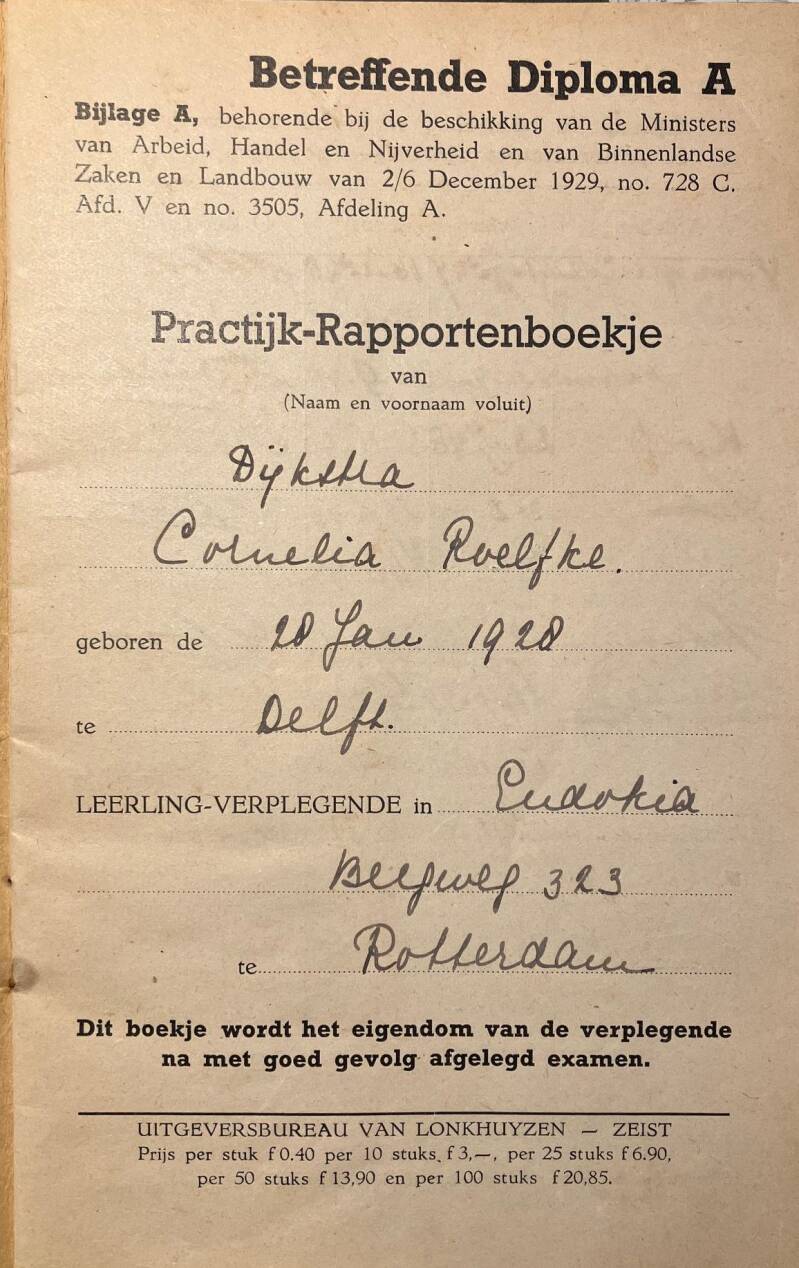 Betreffende Diploma A
Bijlage A, behorende bij de beschikking van de Ministers
van Arbeid, Handel en Nijverheid en van Binnenlandse
Zaken en Landbouw van 2/6 December 1929, no. 728 C.
Afd. V en no. 3505, Afdeling A.
Practijk-Rapportenboekje
van
(Naam en voornaam voluit)
Dijkstra
Cornelia Roelfke.
geboren de 28 Jan 1928
te Delft.
LEERLING-VERPLEGENDE in Eudokia
Bergweg 323
te Rotterdam
Dit boekje wordt het eigendom van de verplegende
na met goed gevolg afgelegd examen.
UITGEVERSBUREAU VAN LONKHUYZEN — ZEIST
Prijs per stuk f 0.40 per 10 stuks, f 3,—, per 25 stuks f 6.90,
per 50 stuks f 13,90 en per 100 stuks f 20,85.